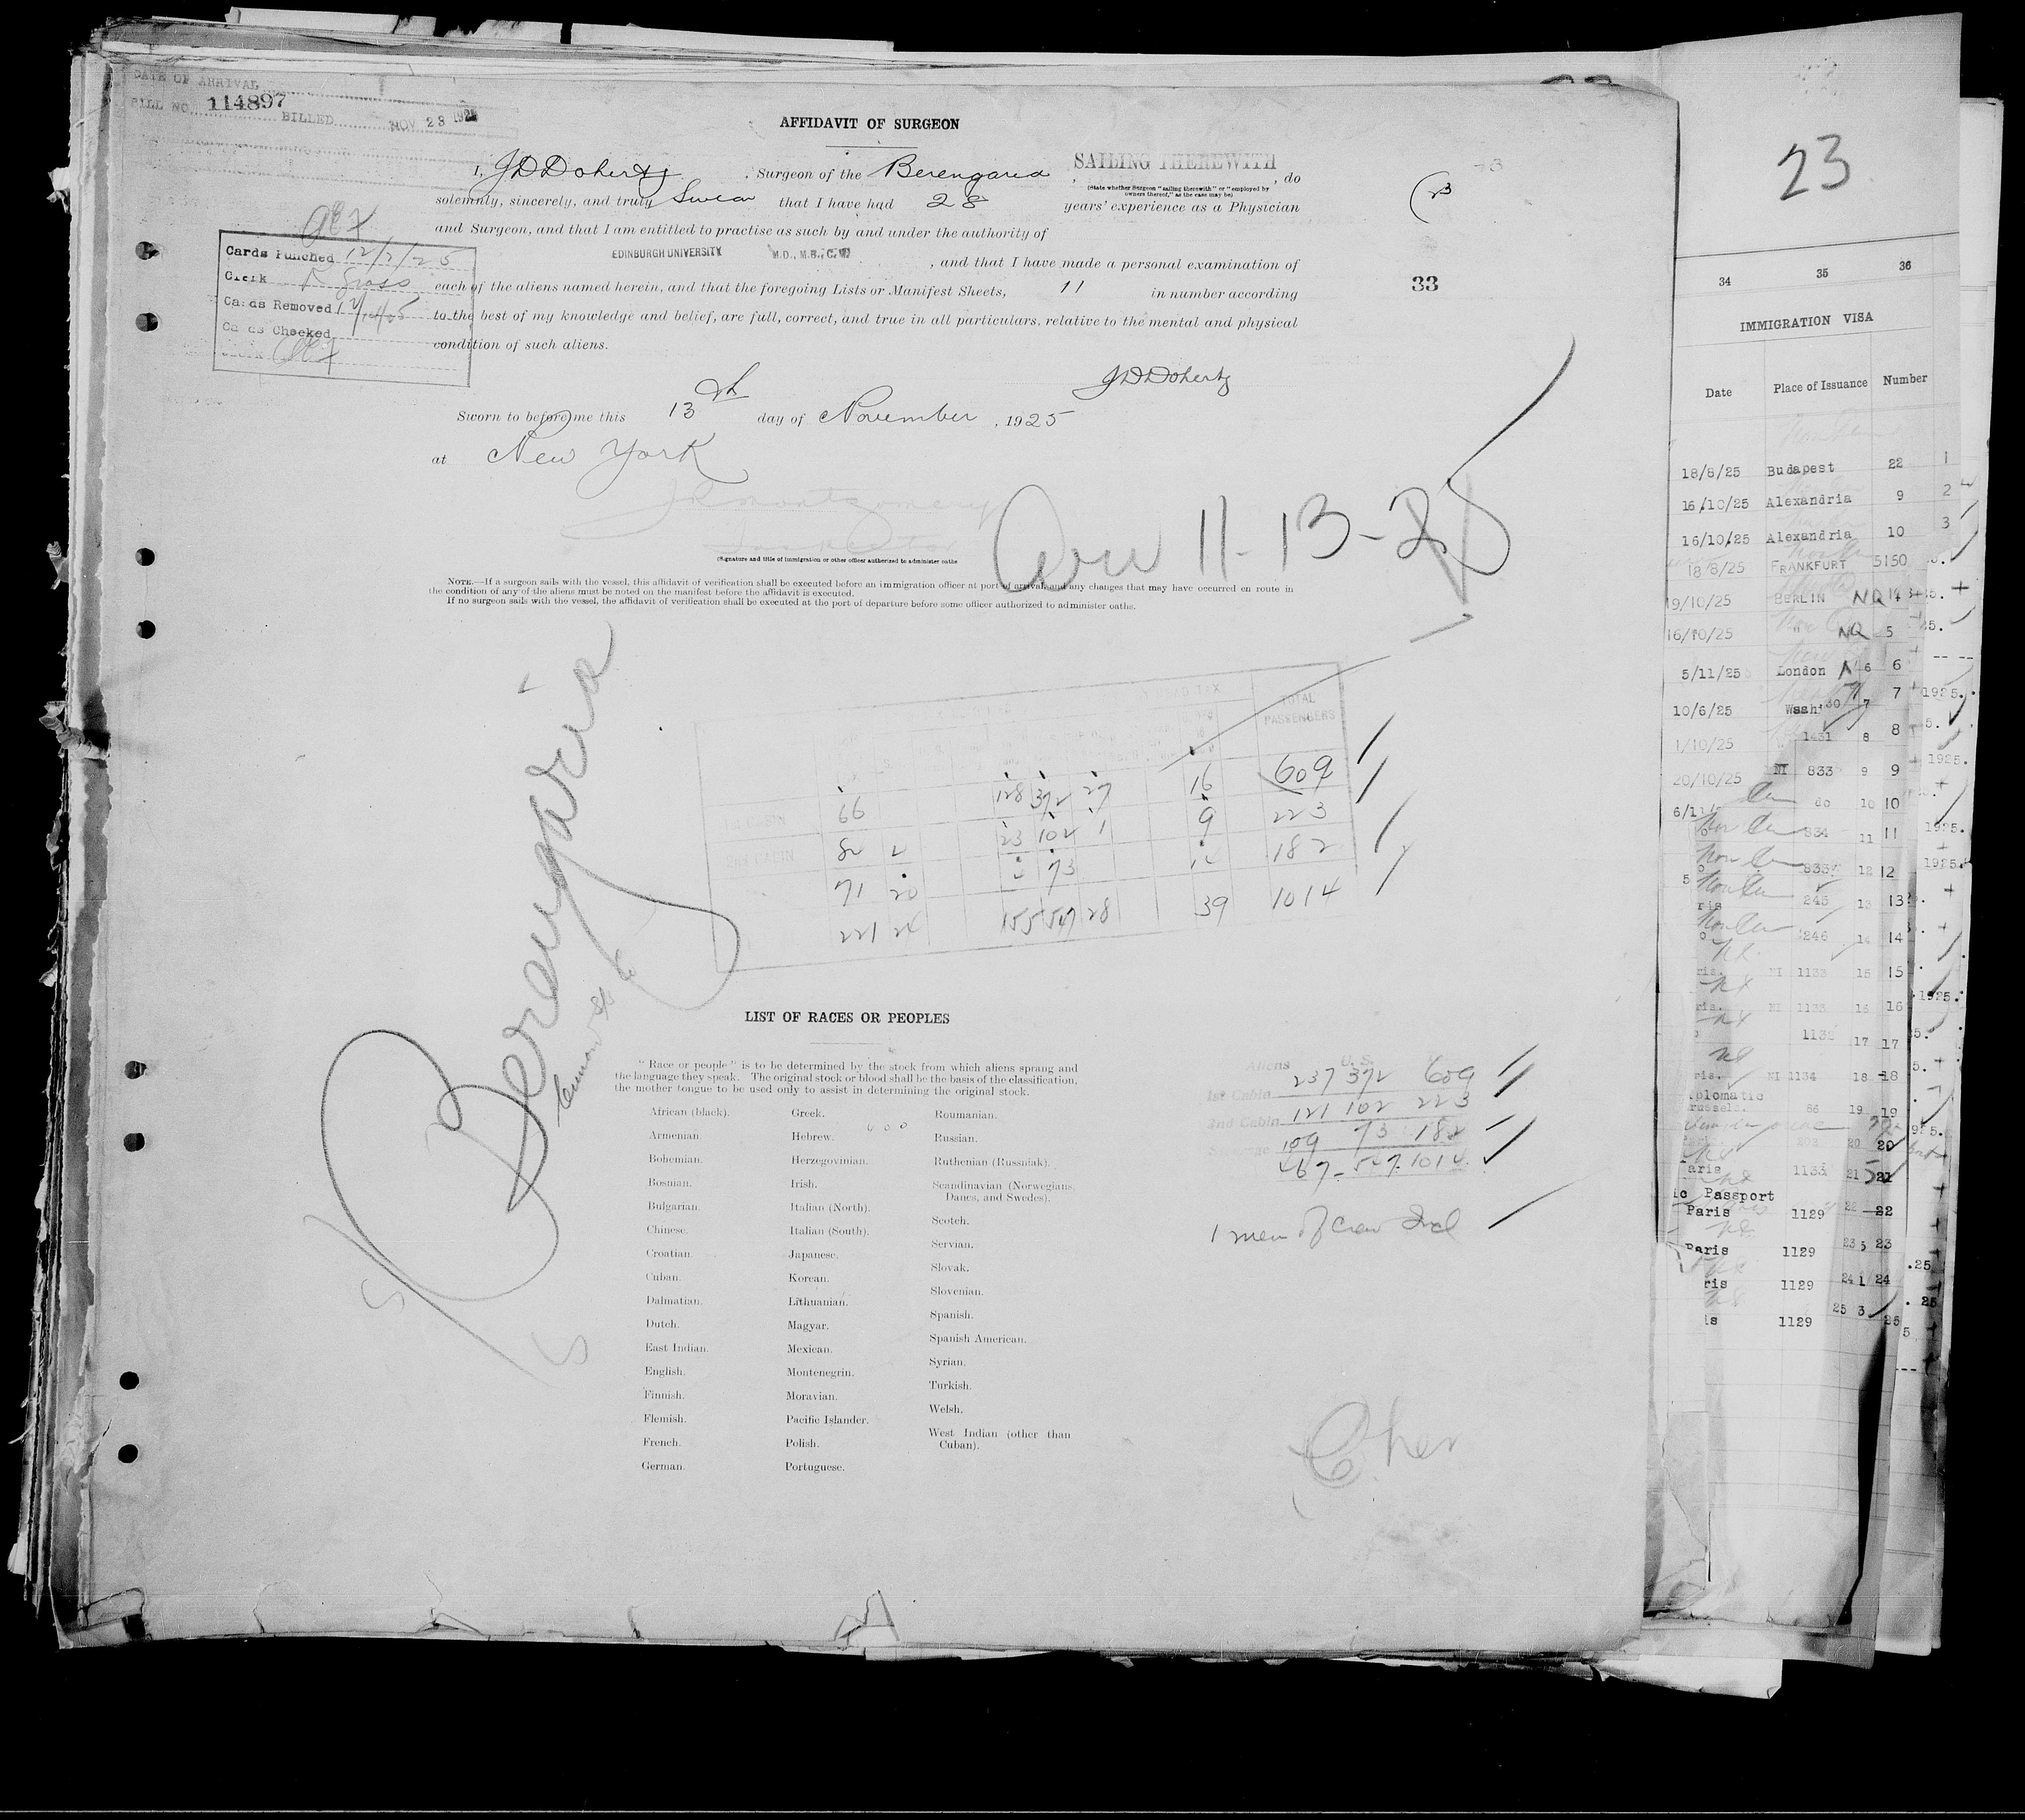 DATE OF ARRIVAL
BILL NO. 114897 BILLED NOV 23 192
AFFIDAVIT OF SURGEON
I, JDDoherty, Surgeon of the Berengaria, SAILING THEREWITH, do
(State whether Surgeon "sailing therewith" or "employed by
owners thereof," as the case may be)
solemnly, sincerely, and truly Swear that I have had 28 years' experience as a Physician
and Surgeon, and that I am entitled to practise as such by and under the authority of
EDINBURGH UNIVERSITY M.D., M.B., C.M.
, and that I have made a personal examination of
each of the aliens named herein, and that the foregoing Lists or Manifest Sheets, 11 in number according
to the best of my knowledge and belief, are full, correct, and true in all particulars, relative to the mental and physical
condition of such aliens.
JDDoherty
Sworn to before me this 13th day of November, 1925
at New York
JR Montgomery
Inspector
(Signature and title of immigration or other officer authorized to administer oaths
Arr 11-13-25
NOTE.—If a surgeon sails with the vessel, this affidavit of verification shall be executed before an immigration officer at port of arrival, and any changes that may have occurred en route in
the condition of any of the aliens must be noted on the manifest before the affidavit is executed.
If no surgeon sails with the vessel, the affidavit of verification shall be executed at the port of departure before some officer authorized to administer oaths.
Cards Punched 12/2/25
Clerk R Gross
Cards Removed
Cards Checked
33
Berengaria
Cunard
HEAD TAX
TOTAL
PASSENGERS
1st CABIN 66 128 372 27 16 609
2nd CABIN 84 23 102 1 9 223
71 20 73 182
221 24 155 547 28 39 1014
LIST OF RACES OR PEOPLES
"Race or people" is to be determined by the stock from which aliens sprang and
the language they speak. The original stock or blood shall be the basis of the classification,
the mother tongue to be used only to assist in determining the original stock.
African (black).
Armenian.
Bohemian.
Bosnian.
Bulgarian.
Chinese.
Croatian.
Cuban.
Dalmatian.
Dutch.
East Indian.
English.
Finnish.
Flemish.
French.
German.
Greek.
Hebrew.
Herzegovinian.
Irish.
Italian (North).
Italian (South).
Japanese.
Korean.
Lithuanian.
Magyar.
Mexican.
Montenegrin.
Moravian.
Pacific Islander.
Polish.
Portuguese.
Roumanian.
Russian.
Ruthenian (Russniak).
Scandinavian (Norwegians,
Danes, and Swedes).
Scotch.
Servian.
Slovak.
Slovenian.
Spanish.
Spanish American.
Syrian.
Turkish.
Welsh.
West Indian (other than
Cuban).
Aliens U.S.
1st Cabin 237 372 609
2nd Cabin 121 102 223
109 73 182
467 547 1014
Cher
23
34 35 36
IMMIGRATION VISA
Date Place of Issuance Number
18/8/25 Budapest 22 1
16/10/25 Alexandria 9 2
16/10/25 Alexandria 10 3
18/8/25 FRANKFURT 5150
19/10/25 BERLIN NQ
16/10/25 " NQ 5
5/11/25 London 6 6
10/6/25 Wash. 7 7
1/10/25 1431 8 8
20/10/25 NI 833 9 9
do 10 10
834 11 11
833 12 12
245 13 13
246 14 14
ris. NI 1133 15 15
ris. NI 1133 16 16
113 17 17
ris. NI 1134 18 18
plomatic
russels. 86 19 19
20 20
aris 1133 21 21
ic Passport
Paris 1129 22 22
Paris 1129 23 23
ris 1129 24 24
is 1129 25 25